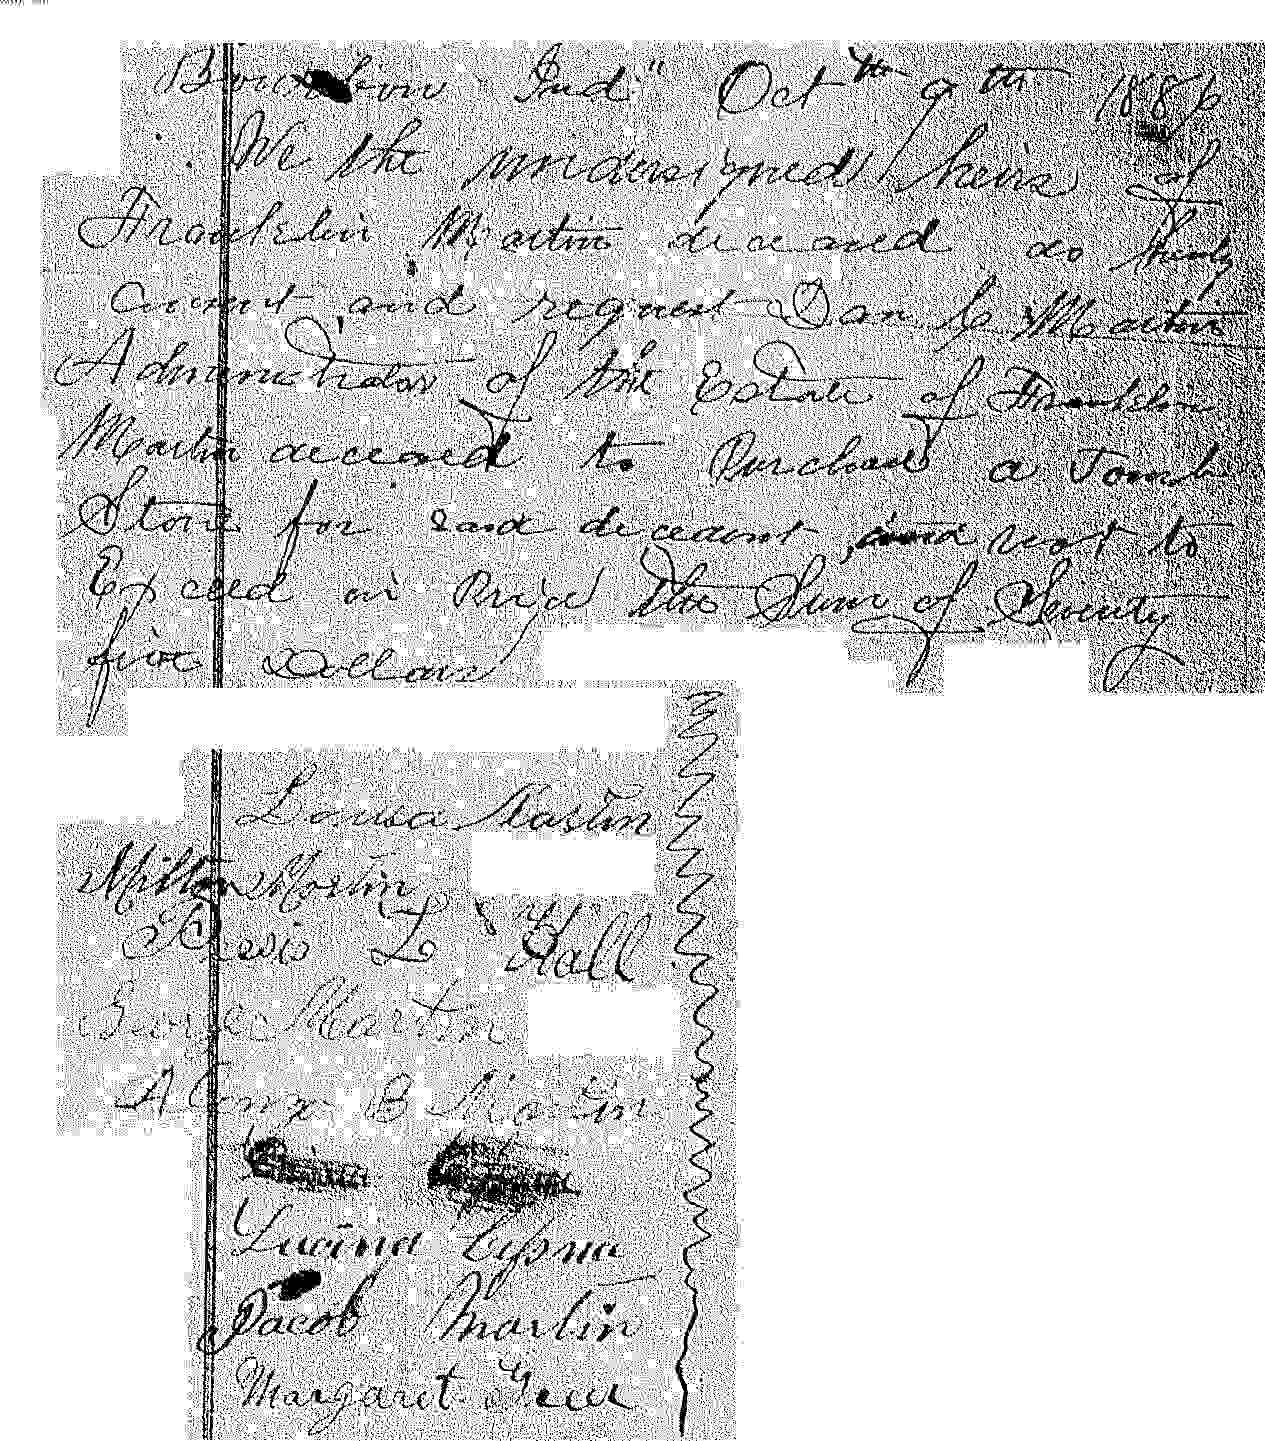 Bourbon Ind" Octth 9th 1886
We the undersigned heirs of
Franklin Martin deceased do hereby
Consent and request Dan C Martin
Administrator of the Estate of Franklin
Martin deceased to Purchase a Tomb
Stone for said decedent, and not to
Exceed in Price the Sum of Seventy
five Dollars
Louisa Martin
Milton Martin
L Hall
George Martin
B Martin
Lucina
Jacob Martin
Margaret Greer